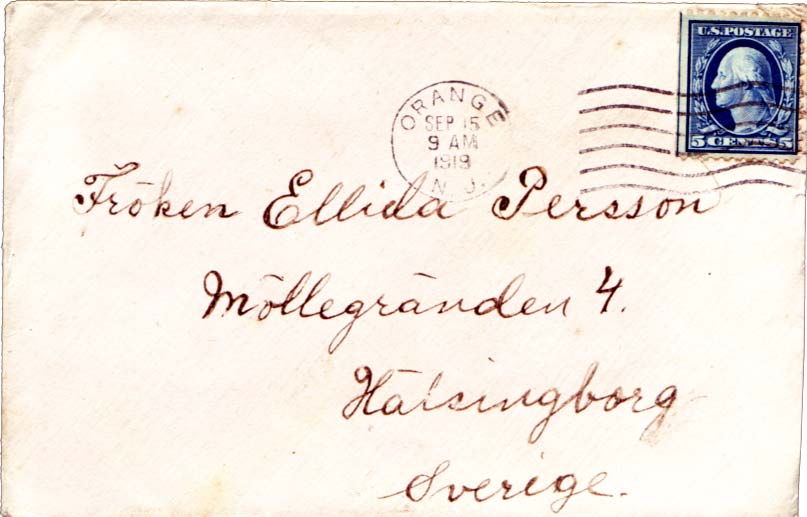 U.S. POSTAGE
5 CENTS 5
ORANGE
SEP 15
9 AM
1919
N. J.
Fröken Ellida Persson
Möllegränden 4.
Hälsingborg
Sverige.